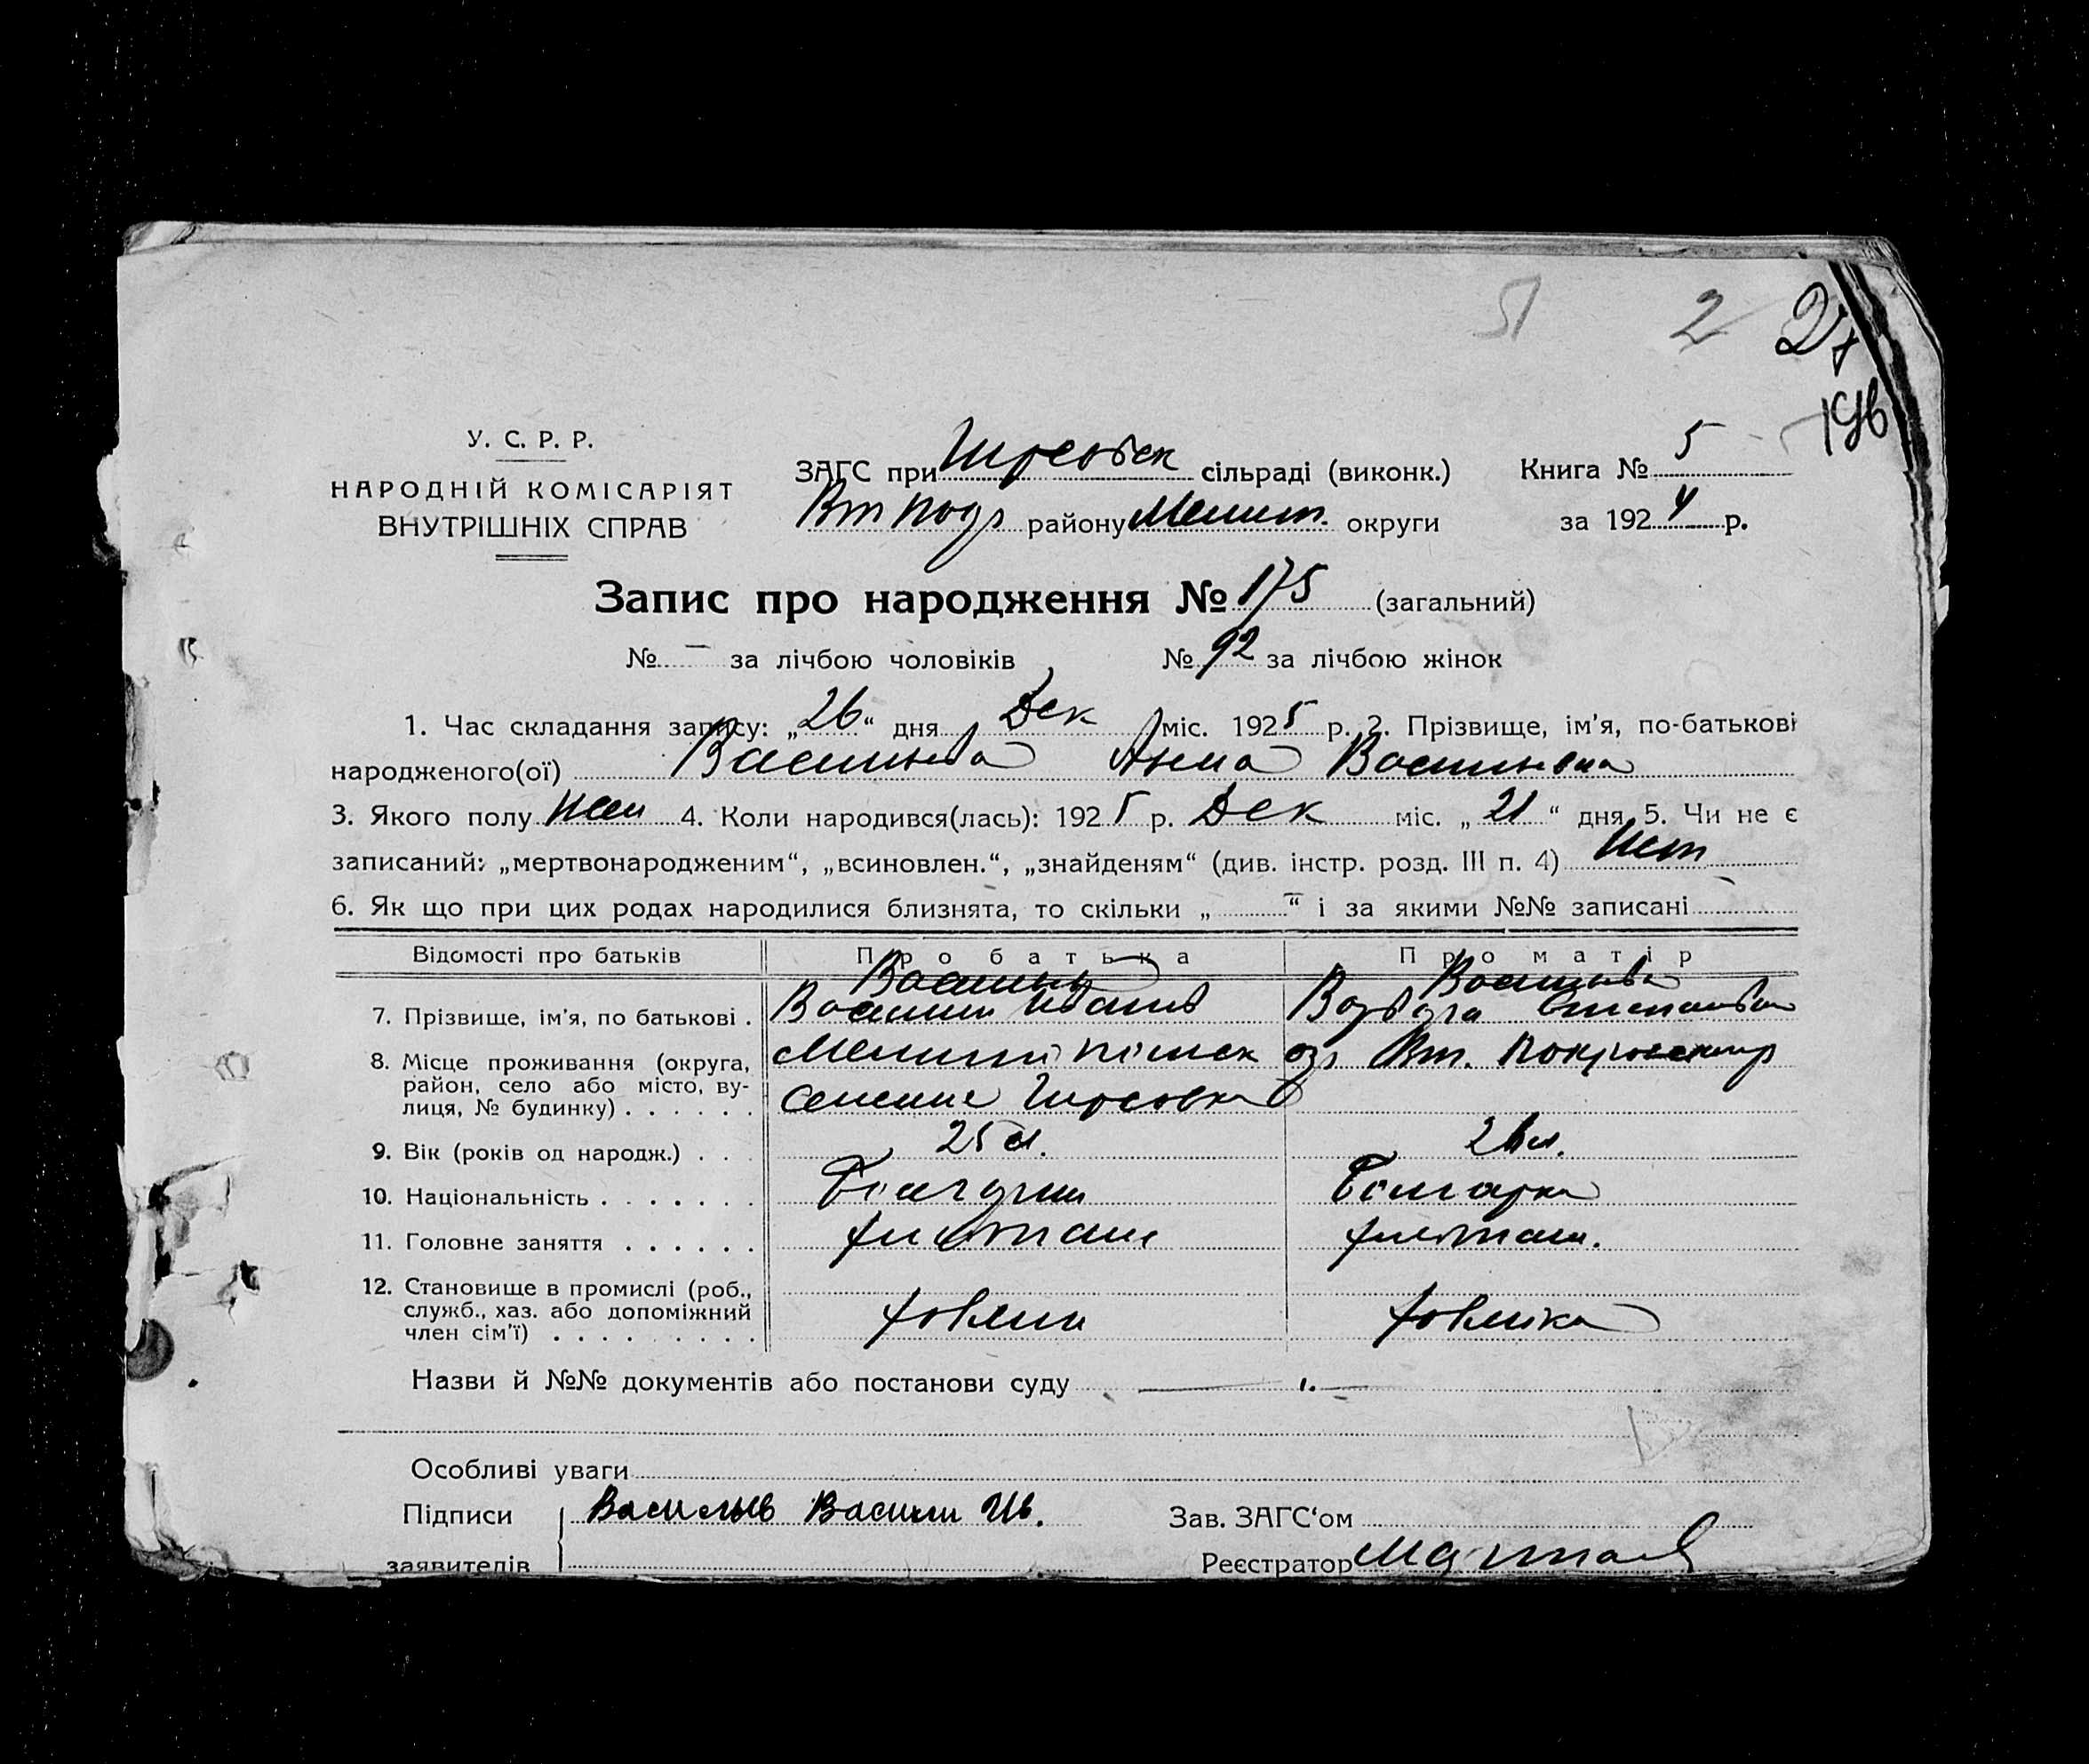 2 24
196
У. С. Р. Р.
НАРОДНІЙ КОМІСАРІЯТ
ВНУТРІШНІХ СПРАВ
ЗАГС при сільраді (виконк.)
району Мелит. округи
Книга № 5
за 1924 р.
Запис про народження № 175 (загальний)
№ — за лічбою чоловіків № 92 за лічбою жінок
1. Час складання запису: „26“ дня Дек міс. 1925 р. 2. Прізвище, ім’я, по-батькові
народженого(ої) Васильева Анна Васильевна
3. Якого полу жен 4. Коли народився(лась): 1925 р. Дек міс. „21“ дня 5. Чи не є
записаний: „мертвонародженим“, „всиновлен.“, „знайденям“ (див. інстр. розд. III п. 4) Нет
6. Як що при цих родах народилися близнята, то скільки „—“ і за якими №№ записані
Відомості про батьків Про батька Про матір
Васильев Васильева
7. Прізвище, ім’я, по батькові . Василий Иванов Варвара Степановна
8. Місце проживання (округа,
район, село або місто, ву-
лиця, № будинку) . . . . . .
9. Вік (років од народж.) . . . 25 л. 26 л.
10. Національність . . . . . . . Болгарин Болгарка
11. Головне заняття . . . . . . хлебопаш хлебопаш.
12. Становище в промислі (роб.,
служб., хаз. або допоміжний
член сім’ї) . . . . . . . . . хозяин хозяйка
Назви й №№ документів або постанови суду
Особливі уваги
Підписи Васильев Васили Ив. Зав. ЗАГС‘ом
заявителів Реєстратор